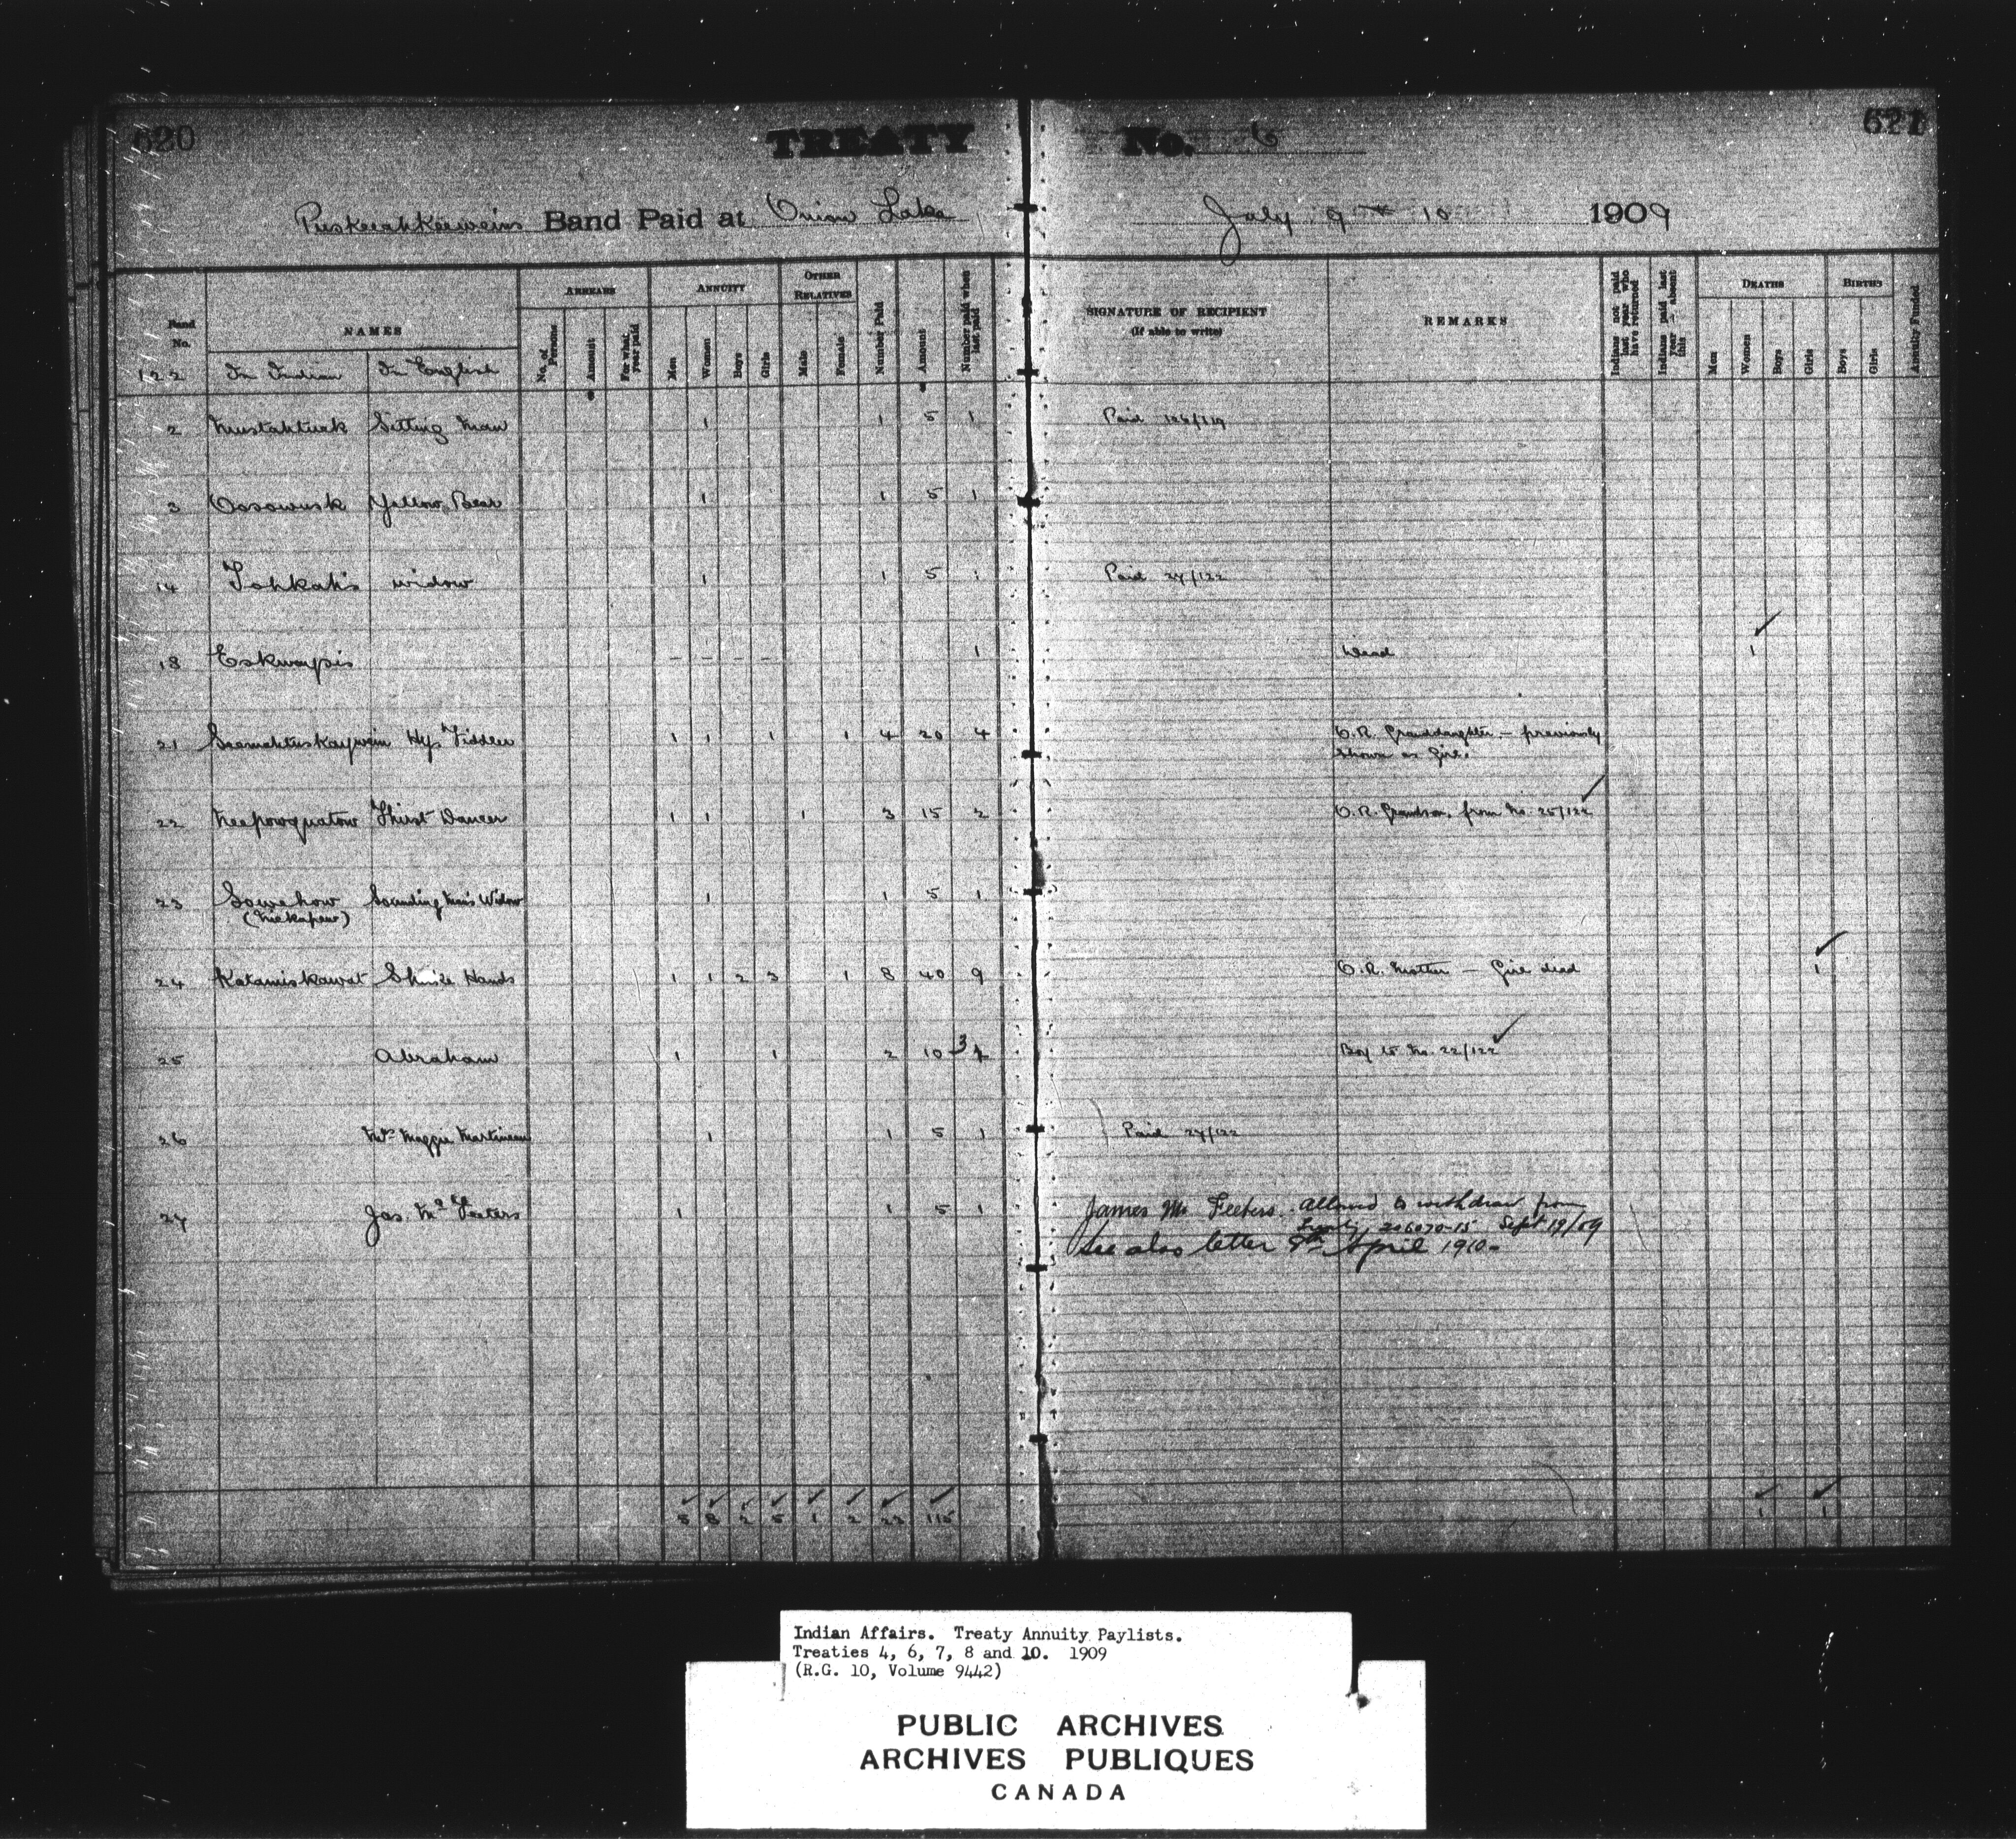 620
TREATY No. 6
621
Puskeeahkeeweins Band Paid at Onion Lake July 9 & 10 1909
Band No. NAMES ARREARS ANNUITY OTHER RELATIVES Number Paid Amount Number paid when last paid SIGNATURE OF RECIPIENT (If able to write) REMARKS Indians not paid last year who have returned Indians paid last year – absent this DEATHS BIRTHS Annuity Funded
122 In Indian In English No. of Persons Amount For what year paid Men Women Boys Girls Male Female Men Women Boys Girls Boys Girls
2 Mustahtuck Sitting Man 1 1 5 1 Paid
3 Oosowusk Yellow Bear 1 1 5 1
14 Tohkah's widow 1 1 5 1 Paid 27/122
18 Eskwaypis - - - - 1 Dead 1
21 Seemahtuskaywein Hy. Fiddler 1 1 1 1 4 20 4 O.R. Granddaughter – previously
shown as Girl.
22 Neepowquatow Thirst Dancer 1 1 1 3 15 2 O.R. Grandson from No. 25/122
23 Sowehow Sounding Man's Widow 1 1 5 1
24 Katamiskawat Shake Hands 1 1 2 3 1 8 40 9 O.R. Mother – Girl dead 1
25 Abraham 1 1 2 10 3 Boy to No. 22/122
26 Mrs Maggie Martineau 1 1 5 1 Paid 27/122
27 Jas. Mc Feeters 1 1 5 1 James Mc Feeters. allowed to withdraw from
Treaty, 206070-15 Sept 19/09
See also letter 9th April 1910-
5 8 2 5 1 2 23 115 1 1
Indian Affairs. Treaty Annuity Paylists.
Treaties 4, 6, 7, 8 and 10. 1909
(R.G. 10, Volume 9442)
PUBLIC ARCHIVES
ARCHIVES PUBLIQUES
CANADA